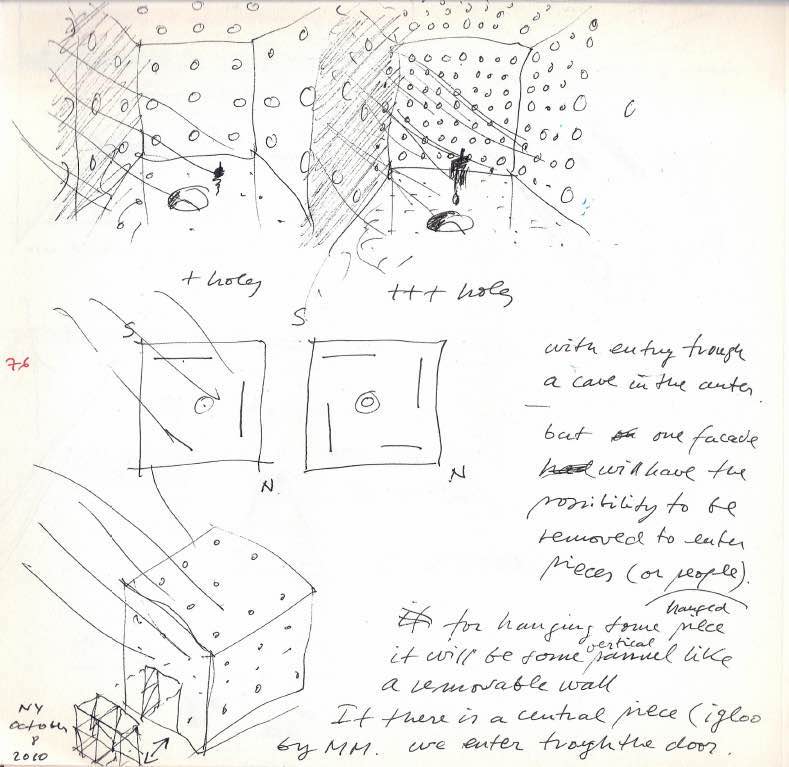 + holes
+++ holes
S
S
76
with entry trough
a cave in the center.
but one facade
will have the
possibility to be
removed to enter
pieces (or people).
hanged
for hanging some piece
vertical
it will be some pannel like
a removable wall
N
N
If there is a central piece (igloo
by MM. we enter trough the door.
NY
October
8
2010